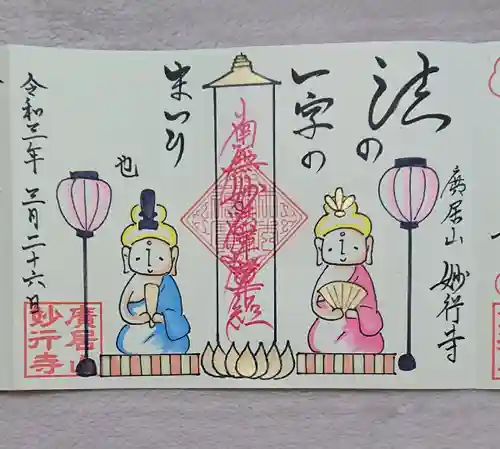 廣居山 妙行寺
法の
一字の
まつり
也
南無妙法蓮華経
令和三年 三月二十六日
廣居山
妙行寺